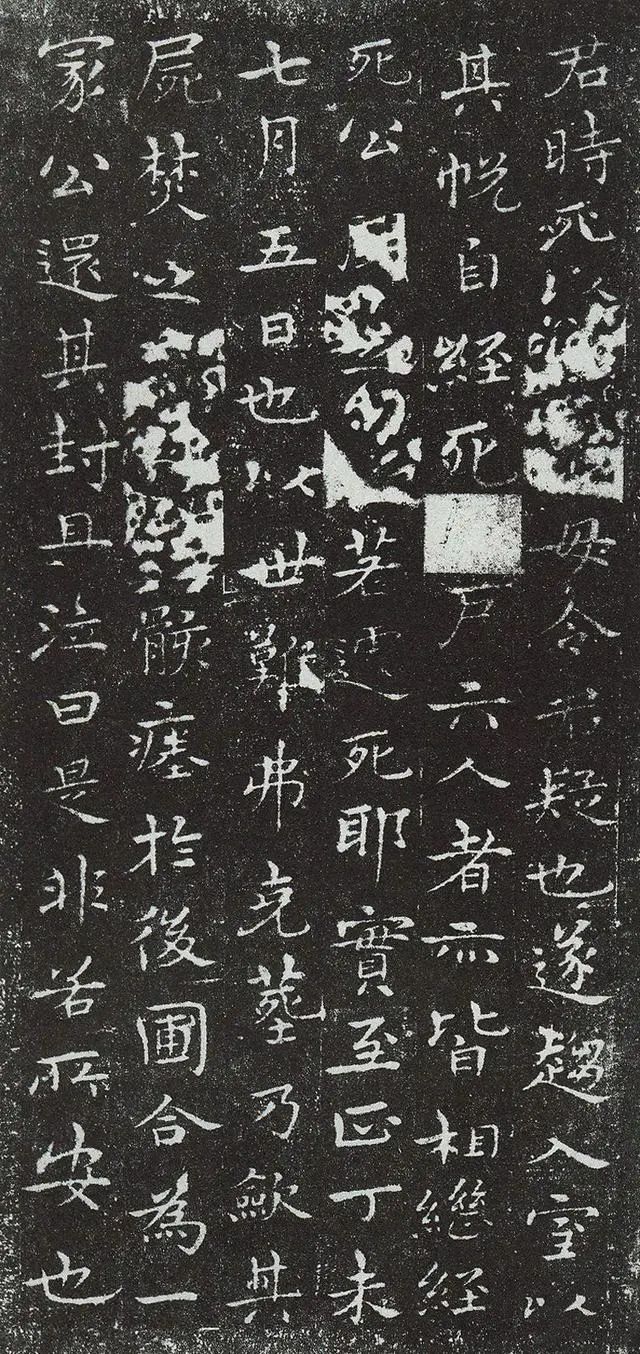 君時死以毋令君疑也遂趨入室以
其帨自經死戶六人者亦皆相繼經
死公若遽死耶實至正丁未
七月五日也以世難弗克葬乃歛其
屍焚之骸瘞於後圃合為一
冢公還其封且泣曰是非若所安也